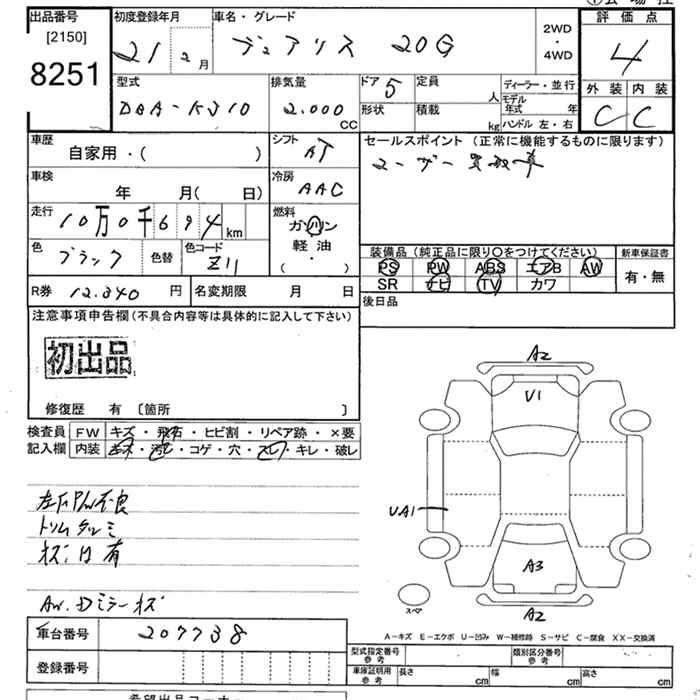 出品番号
[2150]
8251
初度登録年月
21 2月
車名・グレード
デュアリス 20G
2WD
・
4WD
評価点
4
外装 内装
C C
型式
DBA-KJ10
排気量
2.000 CC
ドア 5
形状
定員 人
積載 kg
ディーラー・並行
モデル年式 年
ハンドル 左・右
車歴
自家用・( )
シフト
AT
セールスポイント (正常に機能するものに限ります)
ユーザー買取車
車検
年 月( 日)
冷房
AAC
走行
10万0千694km
燃料
ガソリン
軽油
( ・ )
色
ブラック
色替
色コード
Z11
装備品(純正品に限り○をつけてください)
PS PW ABS エアB AW
SR ナビ TV カワ
新車保証書
有・無
R券 12.340円
名変期限 月 日
後日品
注意事項申告欄(不具合内容等は具体的に記入して下さい)
初出品
修復歴 有 〔箇所 〕
検査員記入欄
FW キズ・飛石・ヒビ割・リペア跡・×要
内装 キズ・汚レ・コゲ・穴・スレ・キレ・破レ
左下PW不良
トリムタルミ
キズ、凹有
AW.Dミラーキズ
A2
V1
UA1
A3
A2
スペア
A－キズ E－エクボ U－凹み W－補修跡 S－サビ C－腐食 XX－交換済
車台番号 207738
登録番号
型式指定番号
参考
類別区分番号
参考
車庫証明用
参考
長さ cm
幅 cm
高さ cm
希望出品コーナー